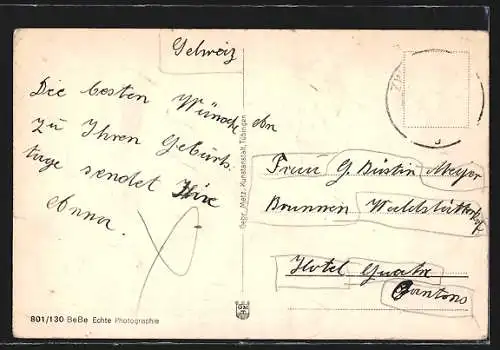 Schweiz
Die besten Wünsche
zu Ihren Geburts-
tage sendet Ihre
Anna.
An
Frau G. Büstin Meyer
Brunnen Waldstätterhof
Hotel Quatre
Cantons
Gebr. Metz, Kunstanstalt, Tübingen
801/130 BeBe Echte Photographie